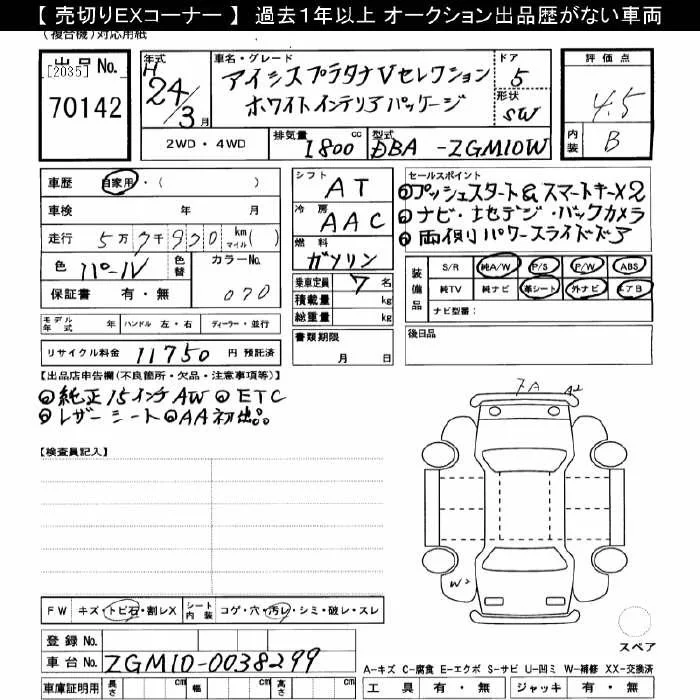 【 売切りEXコーナー 】 過去1年以上 オークション出品歴がない車両
(複合機)対応用紙
出品No.
[2035]
70142
年式
H
24/3月
車名・グレード
アイシスプラタナVセレクション
ホワイトインテリアパッケージ
ドア
5
形状
SW
2WD・4WD
排気量
1800 cc
型式
DBA -ZGM10W
評価点
4.5
内装
B
車歴 自家用・( )
車検 年 月
走行 5万7千930km マイル( )
色 パール 色替 カラーNo.
070
保証書 有・無
シフト AT
冷房 AAC
燃料 ガソリン
乗車定員 7 名
積載量 kg
総重量 kg
セールスポイント
◎プッシュスタート&スマートキー×2
◎ナビ・地デジ・バックカメラ
◎両側パワースライドドア
装備品
S/R 純A/W P/S P/W ABS
純TV 純ナビ 革シート 外ナビ エアB
ナビ型番:
モデル年式 年 ハンドル 左・右 ディーラー・並行
リサイクル料金 11750 円 預託済
書類期限
月 日
後日品
【出品店申告欄(不良箇所・欠品・注意事項等)】
◎純正15インチAW ◎ETC
◎レザーシート ◎AA初出品。
【検査員記入】
フA A2
W2
FW キズ・トビ石・割レX シート内装 コゲ・穴・汚レ・シミ・破レ・スレ
登録No.
車台No. ZGM10-0038299
車庫証明用 長さ cm 幅 cm 高さ cm
スペア
A-キズ C-腐食 E-エクボ S-サビ U-凹ミ W-補修 XX-交換済
工具 有・無 ジャッキ 有・無